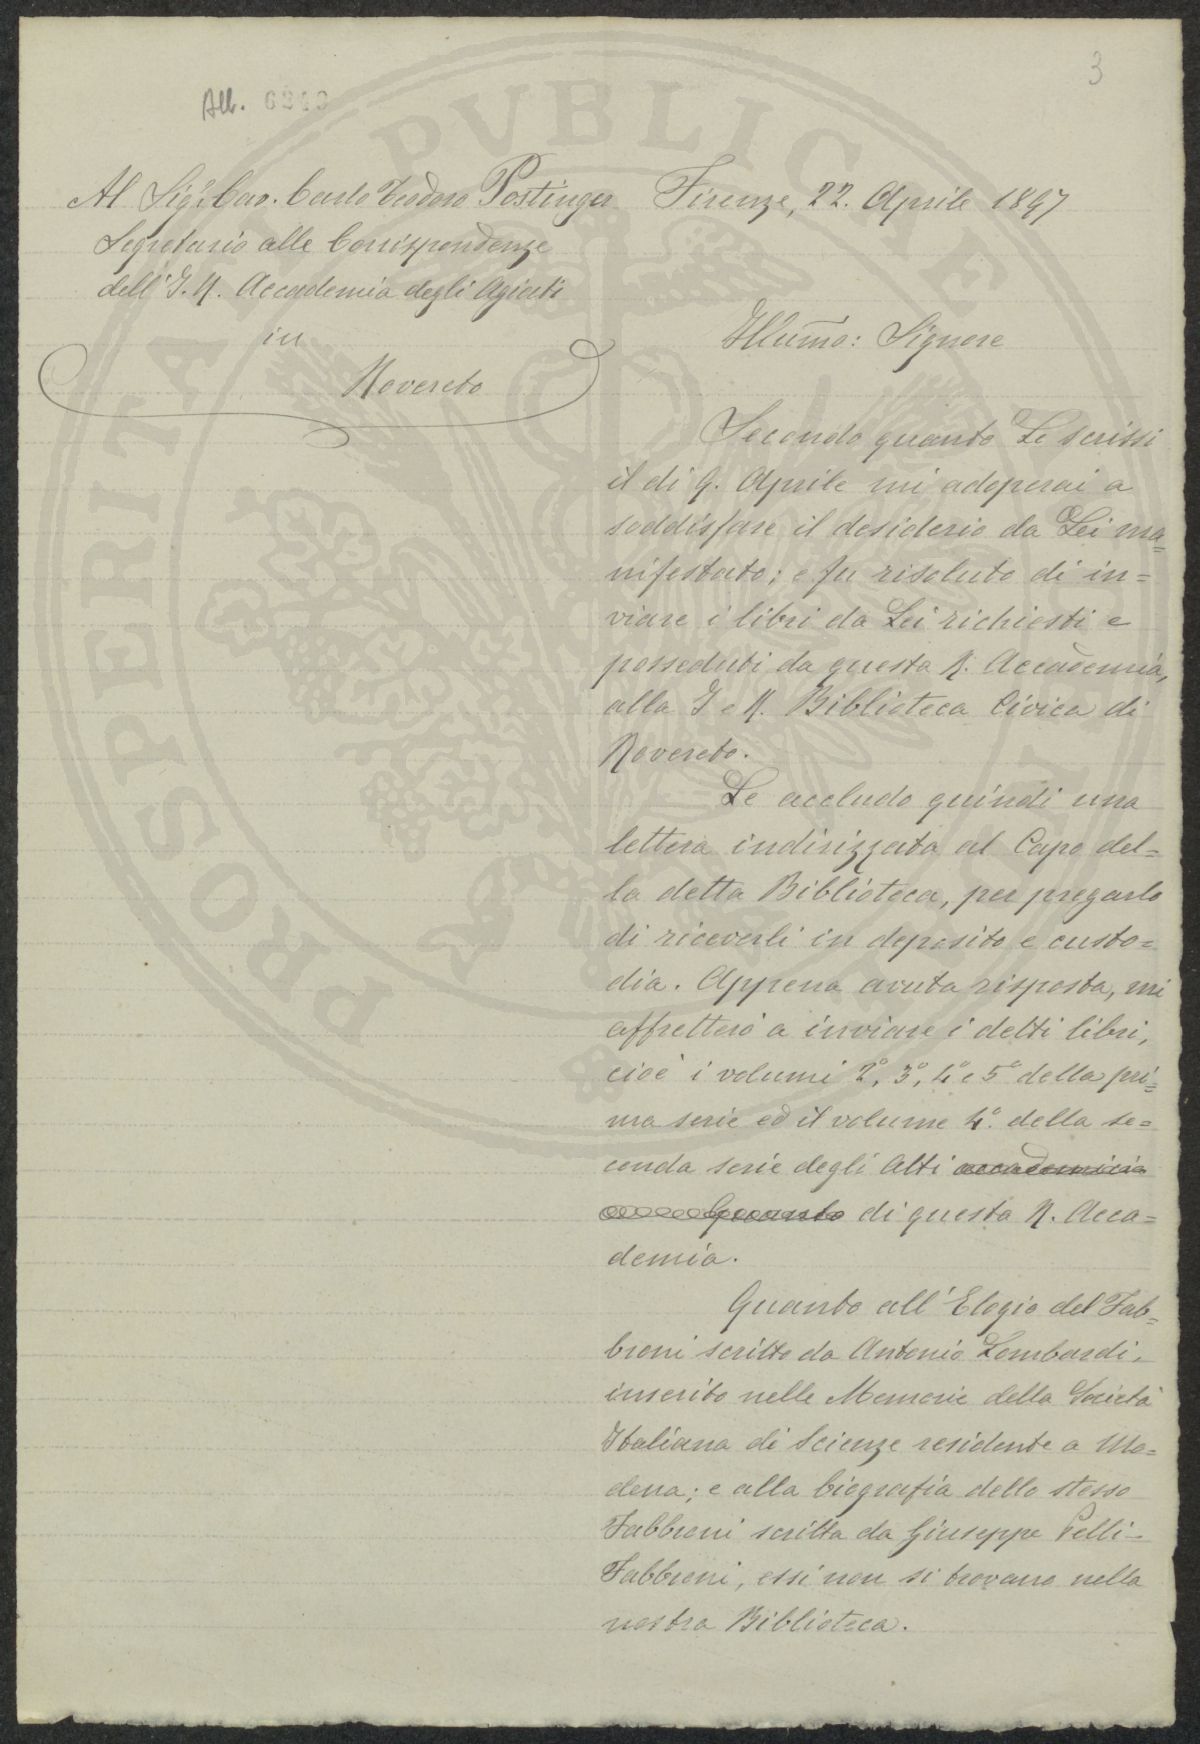 3
All. 6249
Al Sigr. Cav. Carlo Teodoro Postinger
Segretario alle Corrispondenze
dell'I. R. Accademia degli Agiati
in
Rovereto
Firenze, 22. Aprile 1897
Illumo: Signore
Secondo quanto Le scrissi
il dì 9. Aprile mi adoperai a
soddisfare il desiderio da Lei ma=
nifestato; e fu risoluto di in=
viare i libri da Lei richiesti e
posseduti da questa R. Accademia,
alla I e R. Biblioteca Civica di
Rovereto.
Le accludo quindi una
lettera indirizzata al Capo del=
la detta Biblioteca, per pregarlo
di riceverli in deposito e custo=
dia. Appena avuta risposta, mi
affretterò a inviare i detti libri,
cioè i volumi 2º, 3º, 4º e 5º della pri=
ma serie ed il volume 4º. della se=
conda serie degli Atti accademici
Quanto di questa R. Acca=
demia.
Quanto all'Elogio del Fab=
broni scritto da Antonio Lombardi,
inserito nelle Memorie della Società
Italiana di Scienze residente a Mo=
dena; e alla biografia dello stesso
Fabbroni scritta da Giuseppe Pelli=
Fabbroni, essi non si trovano nella
nostra Biblioteca.
PROSPERITATI PVBLICAE